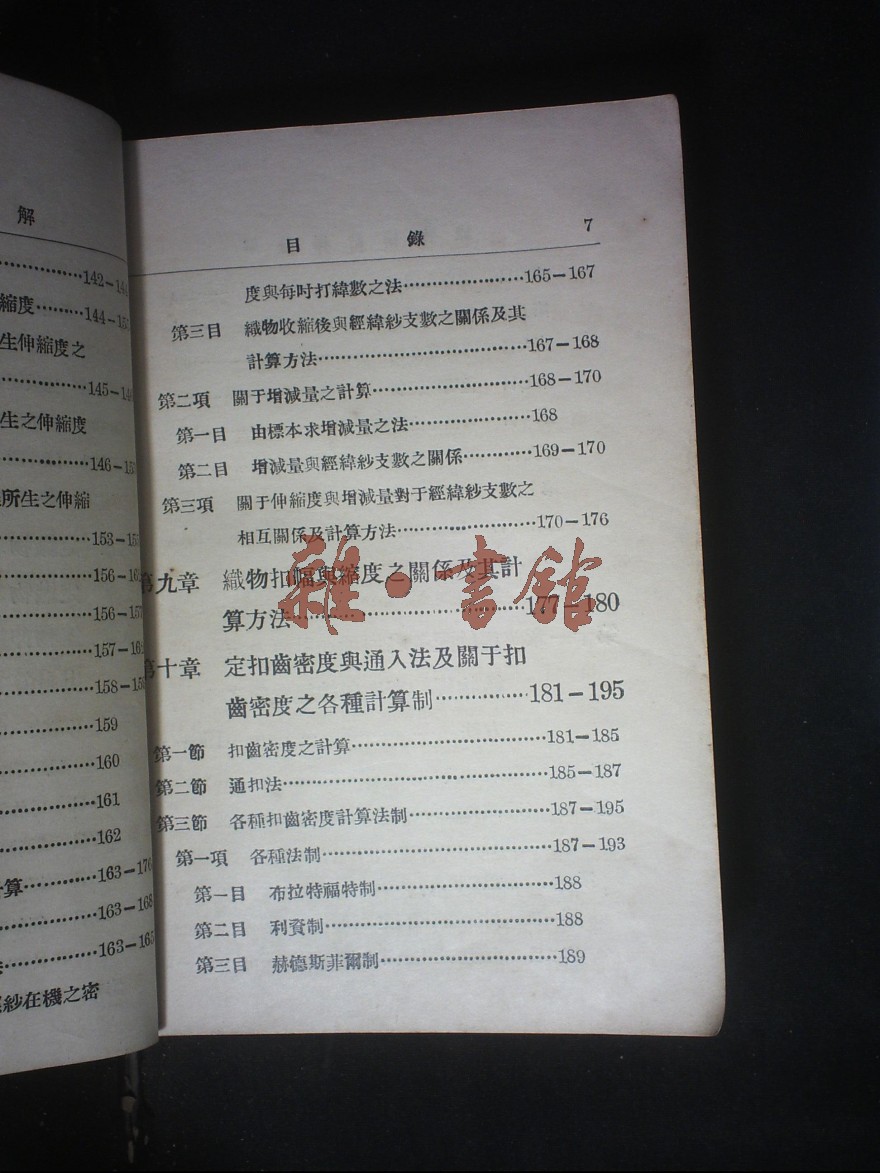 解
142-14
縮度………144-15
生伸縮度之
145-14
生之伸縮度
146-15
所生之伸縮
153-15
156-16
156-15
157-16
158-15
159
160
161
162
算…………163-176
163-168
163-165
紗在機之密
目 錄 7
度與每吋打緯數之法…………………165-167
第三目 織物收縮後與經緯紗支數之關係及其
計算方法………………………………167-168
第二項 關于增減量之計算…………………168-170
第一目 由標本求增減量之法………………168
第二目 增減量與經緯紗支數之關係…………169-170
第三項 關于伸縮度與增減量對于經緯紗支數之
相互關係及計算方法…………………170-176
第九章 織物扣幅與縮度之關係及其計
算方法…………………………177-180
第十章 定扣齒密度與通入法及關于扣
齒密度之各種計算制…………181-195
第一節 扣齒密度之計算…………………181-185
第二節 通扣法……………………………185-187
第三節 各種扣齒密度計算法制……………187-195
第一項 各種法制…………………………187-193
第一目 布拉特福特制……………………188
第二目 利資制……………………………188
第三目 赫德斯菲爾制……………………189
雜·書館